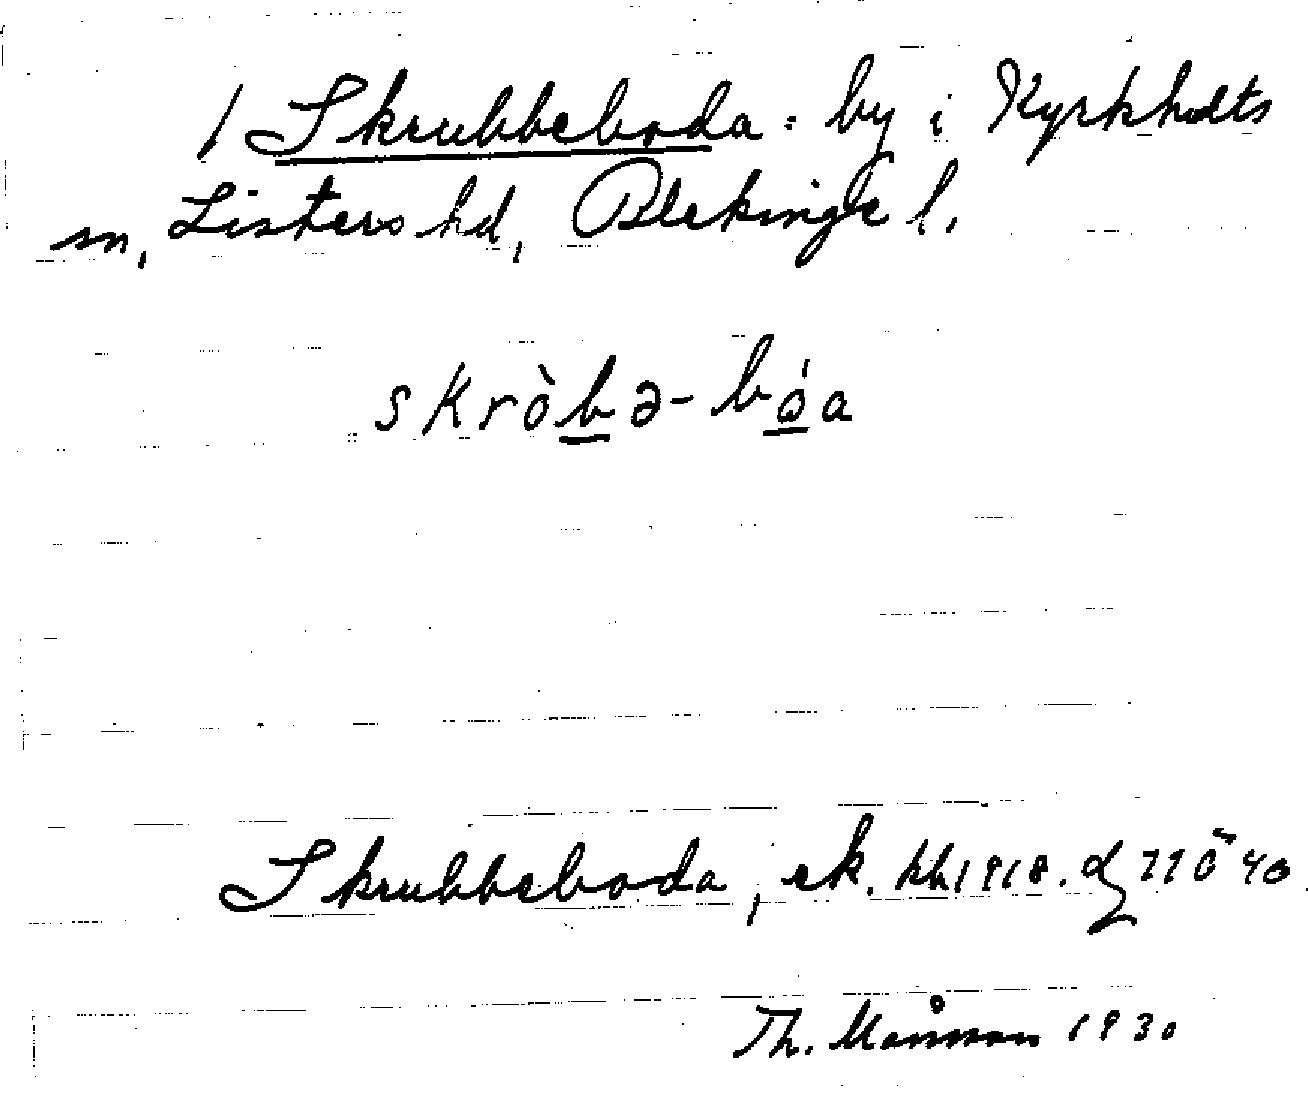 1 Skrubbeboda: by i Kyrkhults
sn, Listers hd, Blekinge l.
skròbə-bóa
Skrubbeboda, ek. kbl 1918. 11ö40
Th. Månsson 1930